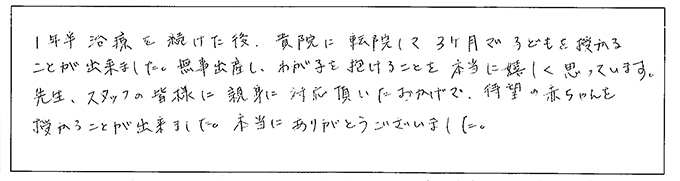 1年半治療を続けた後、貴院に転院して3ヶ月で子どもを授かる
ことが出来ました。無事出産し、わが子を抱けることを本当に嬉しく思っています。
先生、スタッフの皆様に親身に対応頂いたおかげで、待望の赤ちゃんを
授かることが出来ました。本当にありがとうございました。